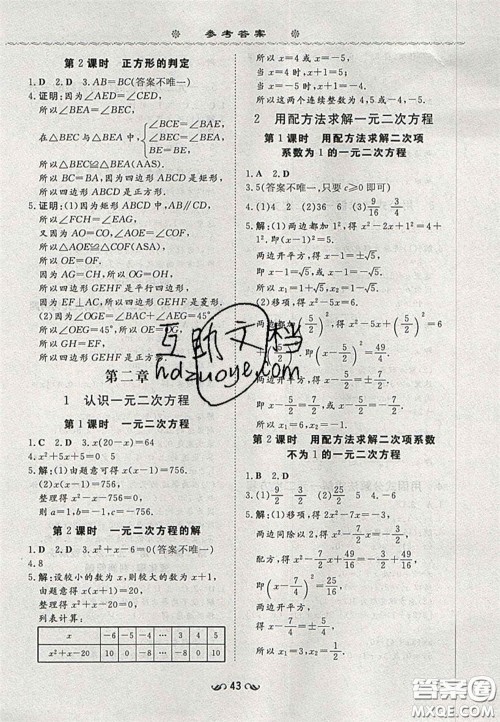 参考答案
第2课时 正方形的判定
1.D 2.D 3.AB=BC(答案不唯一)
4.证明:因为∠AED=∠CED,
所以∠AEB=∠CEB.
在△BEC与△BEA中,{∠CBE=∠ABE,
BE=BE,
∠BEC=∠BEA,
所以△BEC≌△BEA(AAS).
所以BC=BA,因为四边形ABCD是矩形,
所以四边形ABCD是正方形.
5.证明:(1)因为矩形ABCD,
所以∠FCH=∠EAG,
又因为∠AOE=∠COF,
所以△AOE≌△COF(ASA).
所以OE=OF.
因为AG=CH,所以OG=OH.
所以四边形GEHF是平行四边形.
因为EF⊥AC,所以GEHF是菱形.
(2)因为∠OGE=∠AEG=45°,
所以∠OEG=45°.
所以OE=OG.
所以GH=EF.
所以四边形GEHF是正方形.
第二章
1 认识一元二次方程
第1课时 一元二次方程
1.C 2.D 3.x(20-x)=64
4.x²+5x+5=0
5.解:(1)由题意可得(x-1)x=756.
(2)(x-1)x=756.
整理得x²-x=756.
所以a=1,b=-1,c=-756.
第2课时 一元二次方程的解
1.D 2.D 3.x²+x-6=0(答案不唯一)
4.8
5.解:设较小的数为x,则较大的数为x+1,
根据题意得x(x+1)=20,
整理得x²+x-20=0.
列表计算:
x -6 -5 -4 … 3 4 5
x²+x-20 10 0 -8 … -8 0 10
所以x=4或x=-5.
当x=4时,x+1=5,
当x=-5时,x+1=-4.
所以这两个连续整数为4,5或-4,-5.
2 用配方法求解一元二次方程
第1课时 用配方法求解二次项
系数为1的一元二次方程
1.D 2.A
3.5(答案不唯一,只要c≥0即可)
4.(1)4 2 (2)36 6 (3)9/16 3/4
5.解:(1)两边都加1²,得x²-2x+1²=4+
1,即(x-1)²=5.
两边开平方,得x-1=±√5,
即x-1=√5,或x-1=-√5.
所以x₁=1+√5,x₂=1-√5.
(2)移项,得x²-5x=-6.
两边都加(-5/2)²,得x²-5x+(-5/2)²=-6
+(-5/2)²,即(x-5/2)²=1/4.
两边开平方,得x-5/2=±1/2,
即x-5/2=1/2,或x-5/2=-1/2.
所以x₁=3,x₂=2.
第2课时 用配方法求解二次项系数
不为1的一元二次方程
1.D 2.A
5.解:移项,得2x²-7x=-6.
配方,得x²-7/2x+49/16=-3+49/16,
即(x-7/4)²=1/16.
两边开平方,得x-7/4=±1/4.
43
互助文档
hdzuoye.com
答案圈
MXQE.COM